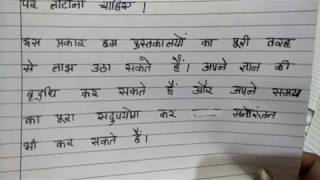 पर लौटाना चाहिए ।
इस प्रकार हम पुस्तकालयों का पूरी तरह
से लाभ उठा सकते हैं। अपने ज्ञान की
वृद्धि कर सकते हैं और अपने समय
का पूरा सदुपयोग कर मनोरंजन
भी कर सकते हैं।